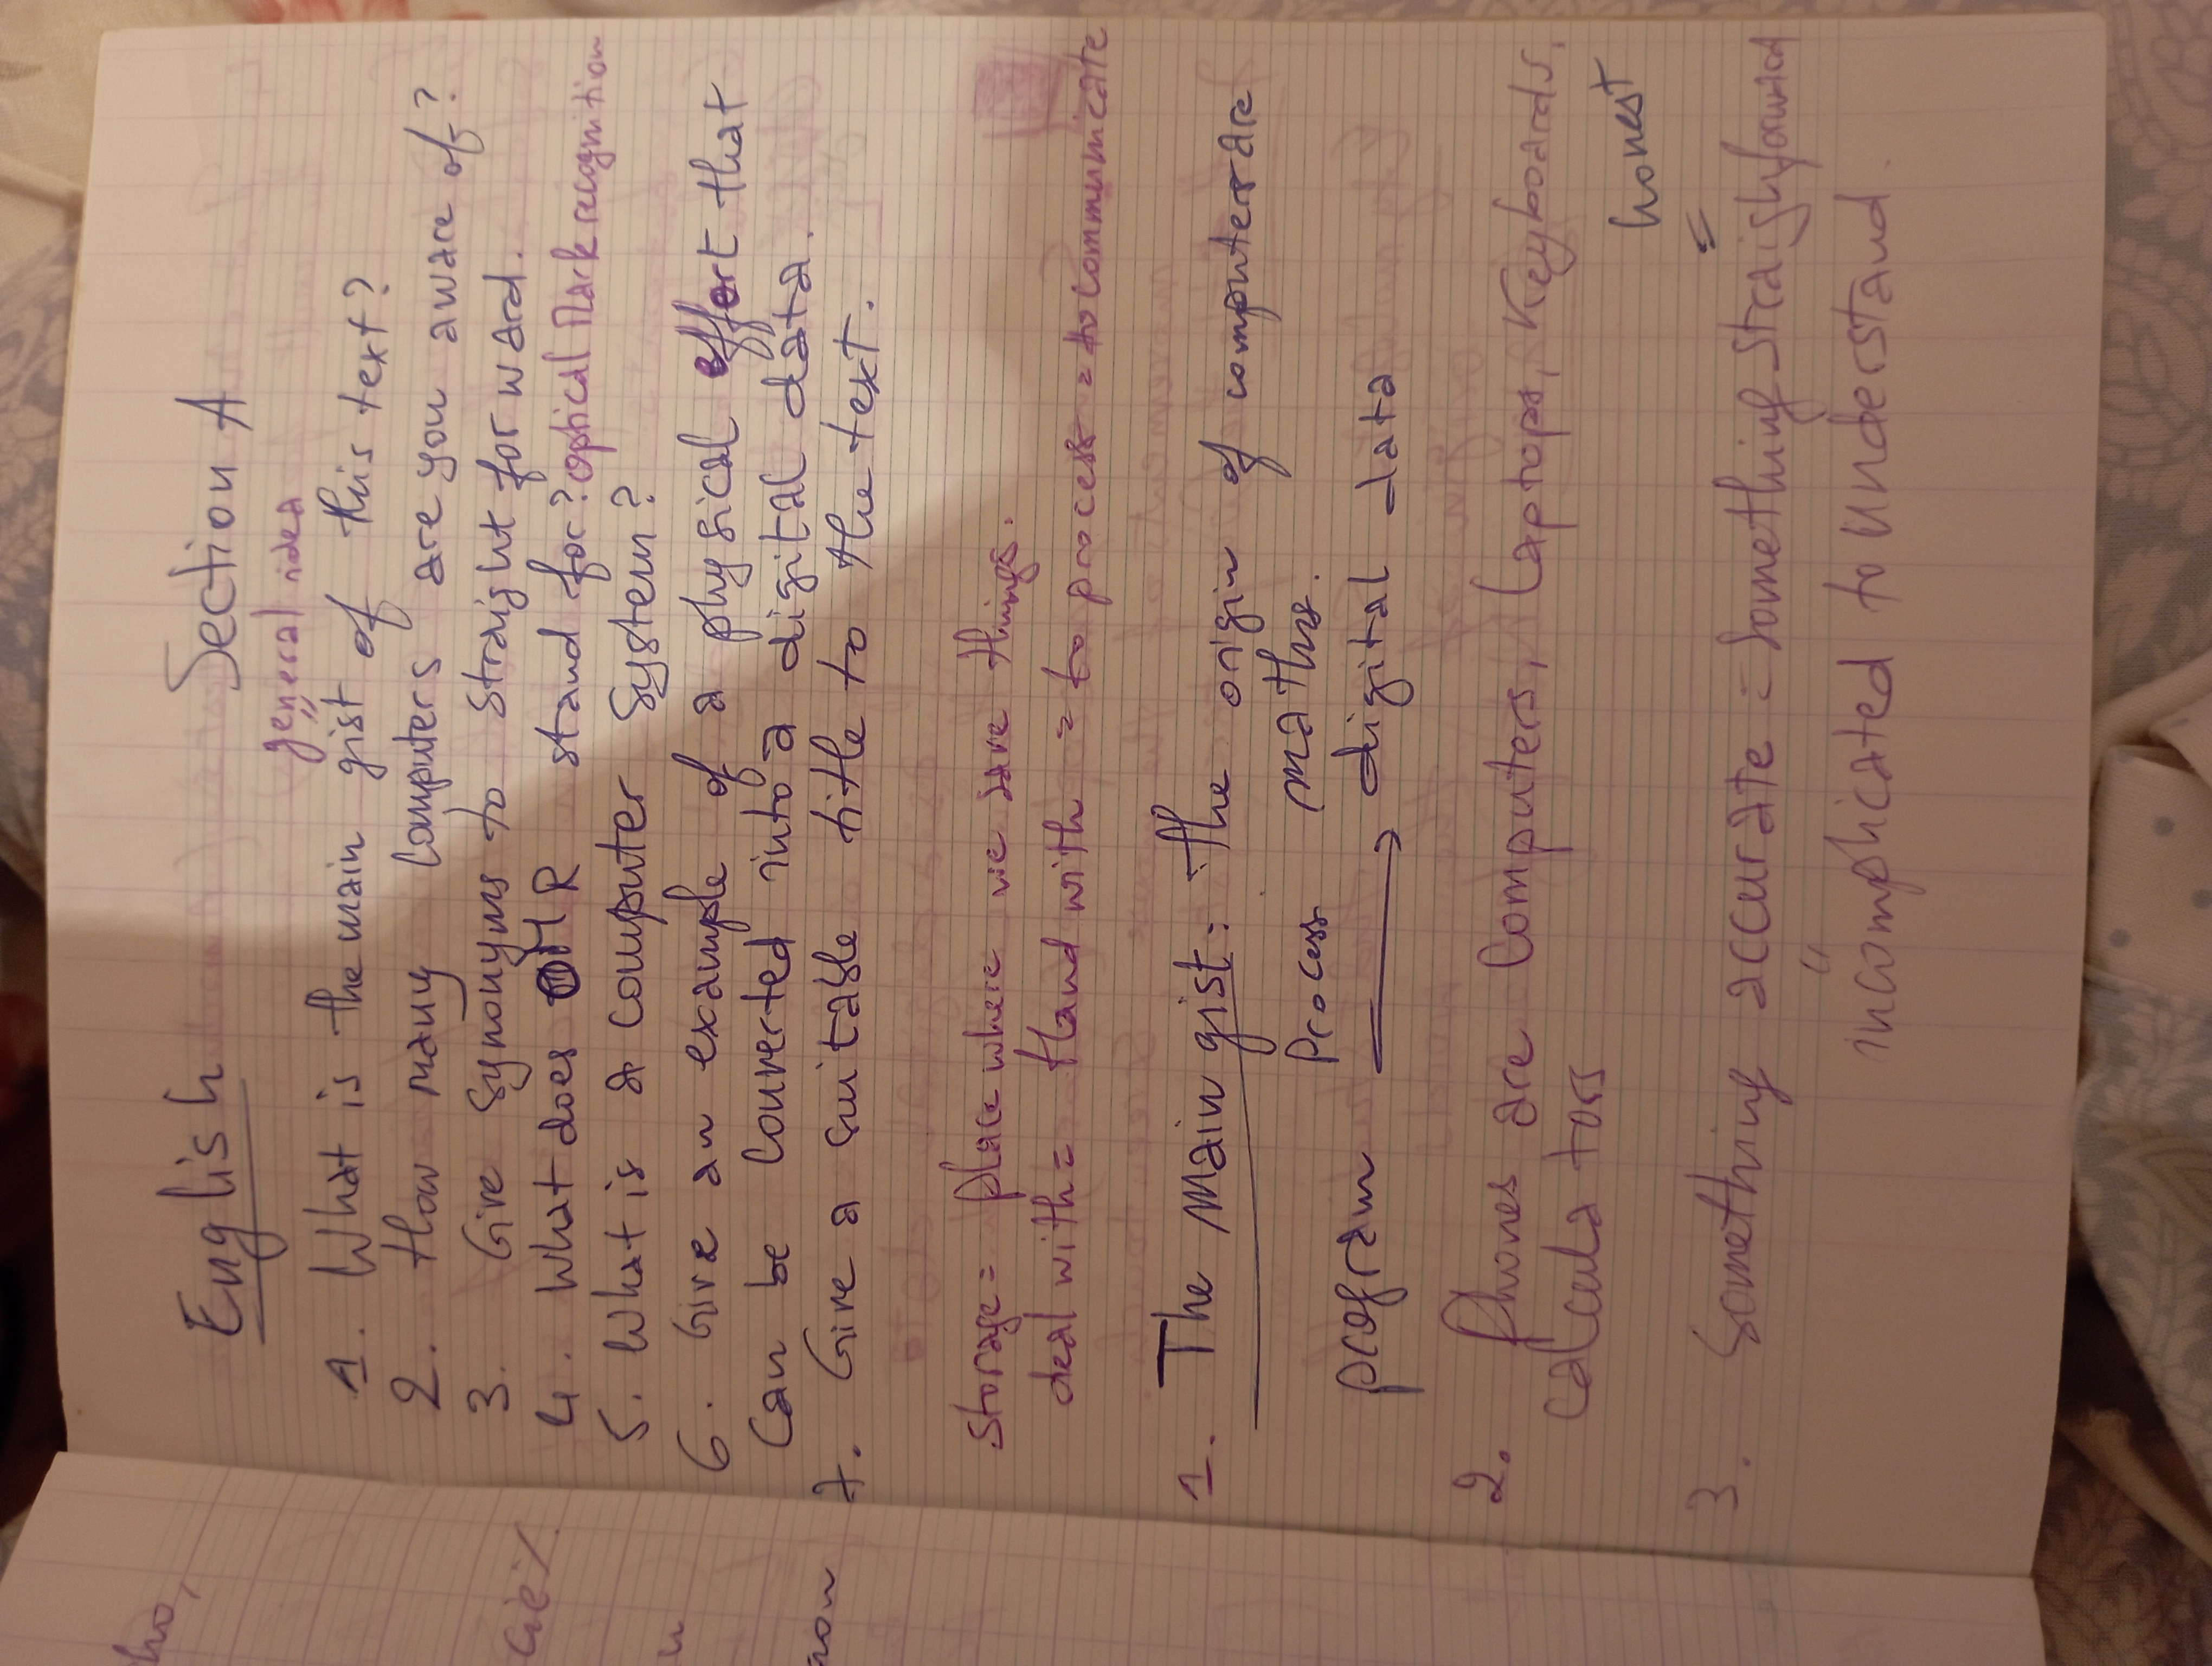 English Section A
general idea
1. What is the main gist of this text?
2. How many computers are you aware of?
3. Give synonyms to straight forward.
4. What does OMR stand for? optical Mark recognition
5. What is a computer system?
6. Give an example of a physical effort that
can be converted into a digital data.
7. Give a suitable title to the text.
Storage = place where we save things.
deal with = Hand with = to process = to communicate
1. The Main gist: The origin of computers are
Process maths.
program → digital data
2. Phones are computers, Laptops, Keyboards,
calculators
honest
=
3. Something accurate = Something straighforward
"
incomplicated to understand